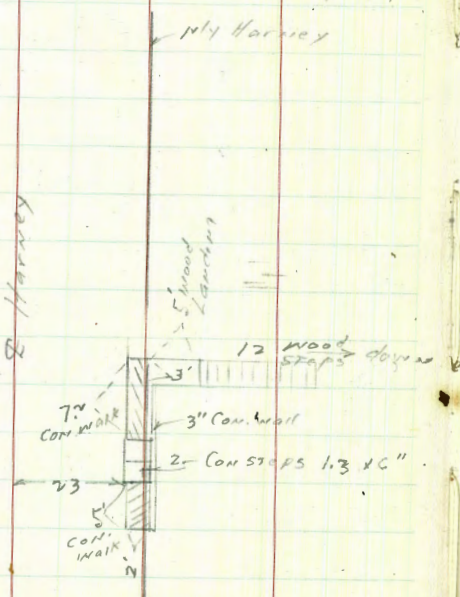 Nly Harney
Harney
5' Wood
Landing
12 Wood
steps down
3'
7.2
Con walk
3" Con. wall
2 - Con Steps 1.3 x 6"
23
5
Con.
walk
2'